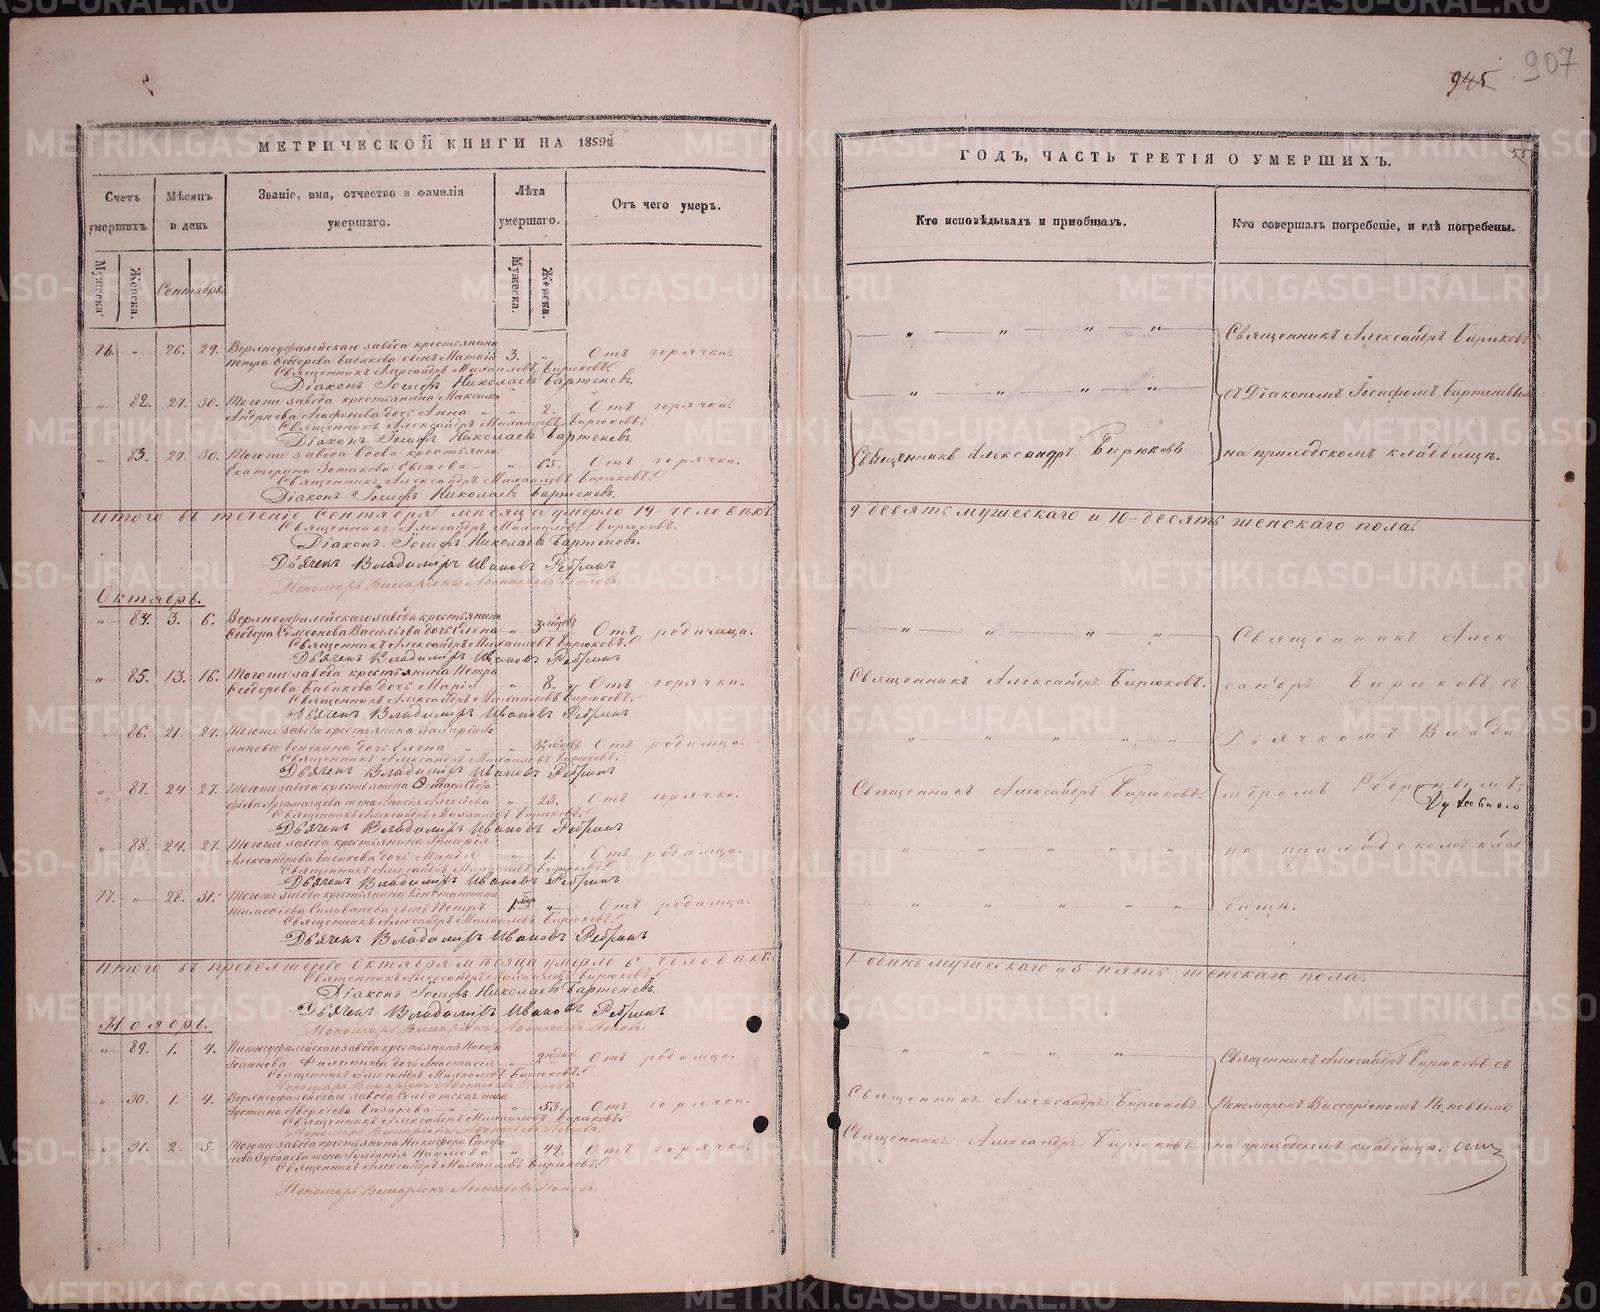 945
907
МЕТРИЧЕСКОЙ КНИГИ НА 1859й
Счетъ умершихъ
Мѣсяцъ и день
Званіе, имя, отчество и фамилія умершаго.
Лѣта умершаго.
Отъ чего умеръ.
Мужеска
Женска.
Сентябрь.
Мужеска.
Женска.
76. " 26. 29. Верхнеуфалейскаго завода крестьянина 3. " Отъ горячки.
Петра Ѳеодорова Бабикова сынъ Матвій
Священникъ Александръ Михаиловъ Бирюковъ.
Діаконъ Іосифъ Николаевъ Бартеневъ.
" 82. 27. 30. Тогоже завода крестьянина Максима
Андреева Агафонова дочь Анна " 2. Отъ горячки.
Священникъ Александръ Михаиловъ Бирюковъ.
Діаконъ Іосифъ Николаевъ Бартеневъ.
" 83. 27. 30. Тогоже завода вдова крестьянка
Екатерина " 65. Отъ горячки.
Священникъ Александръ Михаиловъ Бирюковъ.
Діаконъ Іосифъ Николаевъ Бартеневъ.
Итого въ теченіе Сентября мѣсяца умерло 19-человѣкъ
Священникъ Александръ Михаиловъ Бирюковъ.
Діаконъ Іосифъ Николаевъ Бартеневъ.
Дьячекъ Владиміръ Ивановъ Ребринъ
Пономарь Виссаріонъ Аѳонасьевъ Поповъ.
Октябрь.
" 84. 3. 6. Верхнеуфалейскаго завода крестьянина
Ѳеодора Симеонова Васильева дочь Елена " 3 мѣсяцъ Отъ родимца.
Священникъ Александръ Михаиловъ Бирюковъ.
Дьячекъ Владиміръ Ивановъ Ребринъ
" 85. 13. 16. Тогоже завода крестьянина Петра
Ѳеодорова Бабикова дочь Марія " 8. Отъ горячки.
Священникъ Александръ Михаиловъ Бирюковъ.
Дьячекъ Владиміръ Ивановъ Ребринъ
" 86. 21. 24. Тогоже завода крестьянина
дочь Елена " Отъ родимца.
Священникъ Александръ Михаиловъ Бирюковъ.
Дьячекъ Владиміръ Ивановъ Ребринъ
" 87. 24 27. Тогоже завода крестьянина
жена " 23. Отъ горячки.
Священникъ Александръ Михаиловъ Бирюковъ.
Дьячекъ Владиміръ Ивановъ Ребринъ
" 88. 24. 27. Тогоже завода крестьянина Григорія
Александрова Бабикова дочь Марія " 1. Отъ родимца.
Священникъ Александръ Михаиловъ Бирюковъ.
Дьячекъ Владиміръ Ивановъ Ребринъ
77. " 28. 31. Тогоже завода крестьянина Константина
Тимоѳіева Сильванова сынъ Петръ " Отъ родимца.
Священникъ Александръ Михаиловъ Бирюковъ.
Дьячекъ Владиміръ Ивановъ Ребринъ
Итого въ продолженіе Октября мѣсяца умерло 6 человѣкъ.
Священникъ Александръ Михаиловъ Бирюковъ.
Діаконъ Іосифъ Николаевъ Бартеневъ.
Дьячекъ Владиміръ Ивановъ Ребринъ
Пономарь Виссаріонъ Аѳонасьевъ Поповъ.
Ноябрь.
" 89. 1. 4. Нижнеуфалейскаго завода крестьянина
Іоаннова дочь Анастасія " Отъ родимца.
Священникъ Александръ Михаиловъ Бирюковъ.
Пономарь Виссаріонъ Аѳонасьевъ Поповъ.
" 90. 1. 4. Верхнеуфалейскаго завода Солдатская жена
Іустина Аверкіева Казакова " 53. Отъ горячки.
Священникъ Александръ Михаиловъ Бирюковъ.
Пономарь Виссаріонъ Аѳонасьевъ Поповъ.
" 91. 2. 5. Тогоже завода крестьянина Никифора
жена Іуліанія Наумова " 49. Отъ горячки.
Священникъ Александръ Михаиловъ Бирюковъ.
Пономарь Виссаріонъ Аѳонасьевъ Поповъ.
ГОДЪ, ЧАСТЬ ТРЕТІЯ О УМЕРШИХЪ.
55
Кто исповѣдывалъ и пріобщалъ.
Кто совершалъ погребеніе, и гдѣ погребены.
" " " " Священникъ Александръ Бирюковъ
" " " " съ Діакономъ Іосифомъ Бартеневымъ
Священникъ Александръ Бирюковъ на приходскомъ кладбищѣ.
9-девять мужескаго и 10-десять женскаго пола.
" " " " Священникъ Алек-
Священникъ Александръ Бирюковъ. сандръ Бирюковъ съ
" " " " " Дьячкомъ Влади
Священникъ Александръ Бирюковъ. міромъ Ребринымъ;
" " " " " на приходскомъ клад
" " " " " бищѣ.
1-одинъ мужескаго и 5-пять женскаго пола.
" " " " Священникъ Александръ Бирюковъ съ
Священникъ Александръ Бирюковъ Пономаремъ Виссаріономъ Поповымъ;
Священникъ Александръ Бирюковъ на приходскомъ кладбищѣ.
METRIKI.GASO-URAL.RU